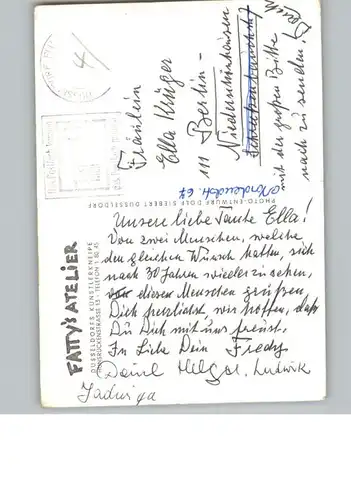 Unsere liebe Tante Ella!
Von zwei Menschen, welche
den gleichen Wunsch hatten, sich
nach 30 Jahren wieder zu sehen,
von diesen Menschen grüßen
Dich herzlichst, wir hoffen, daß
Du Dich mit uns freust.
In Liebe Dein Fredy
Helga, Ludwik
Jadwiga
Fräulein
Ella Krüger
111 Berlin-
Niederschönhausen
Nordendstr. 64
mit der großen Bitte
nach zu senden!
PHOTO-ENTWURF DOLF SIEBERT DUSSELDORF
FATTY'S ATELIER
DUSSELDORFS KÜNSTLERKNEIPE
HUNSRÜCKENSTRASSE 13 · TELEFON 1 80 45